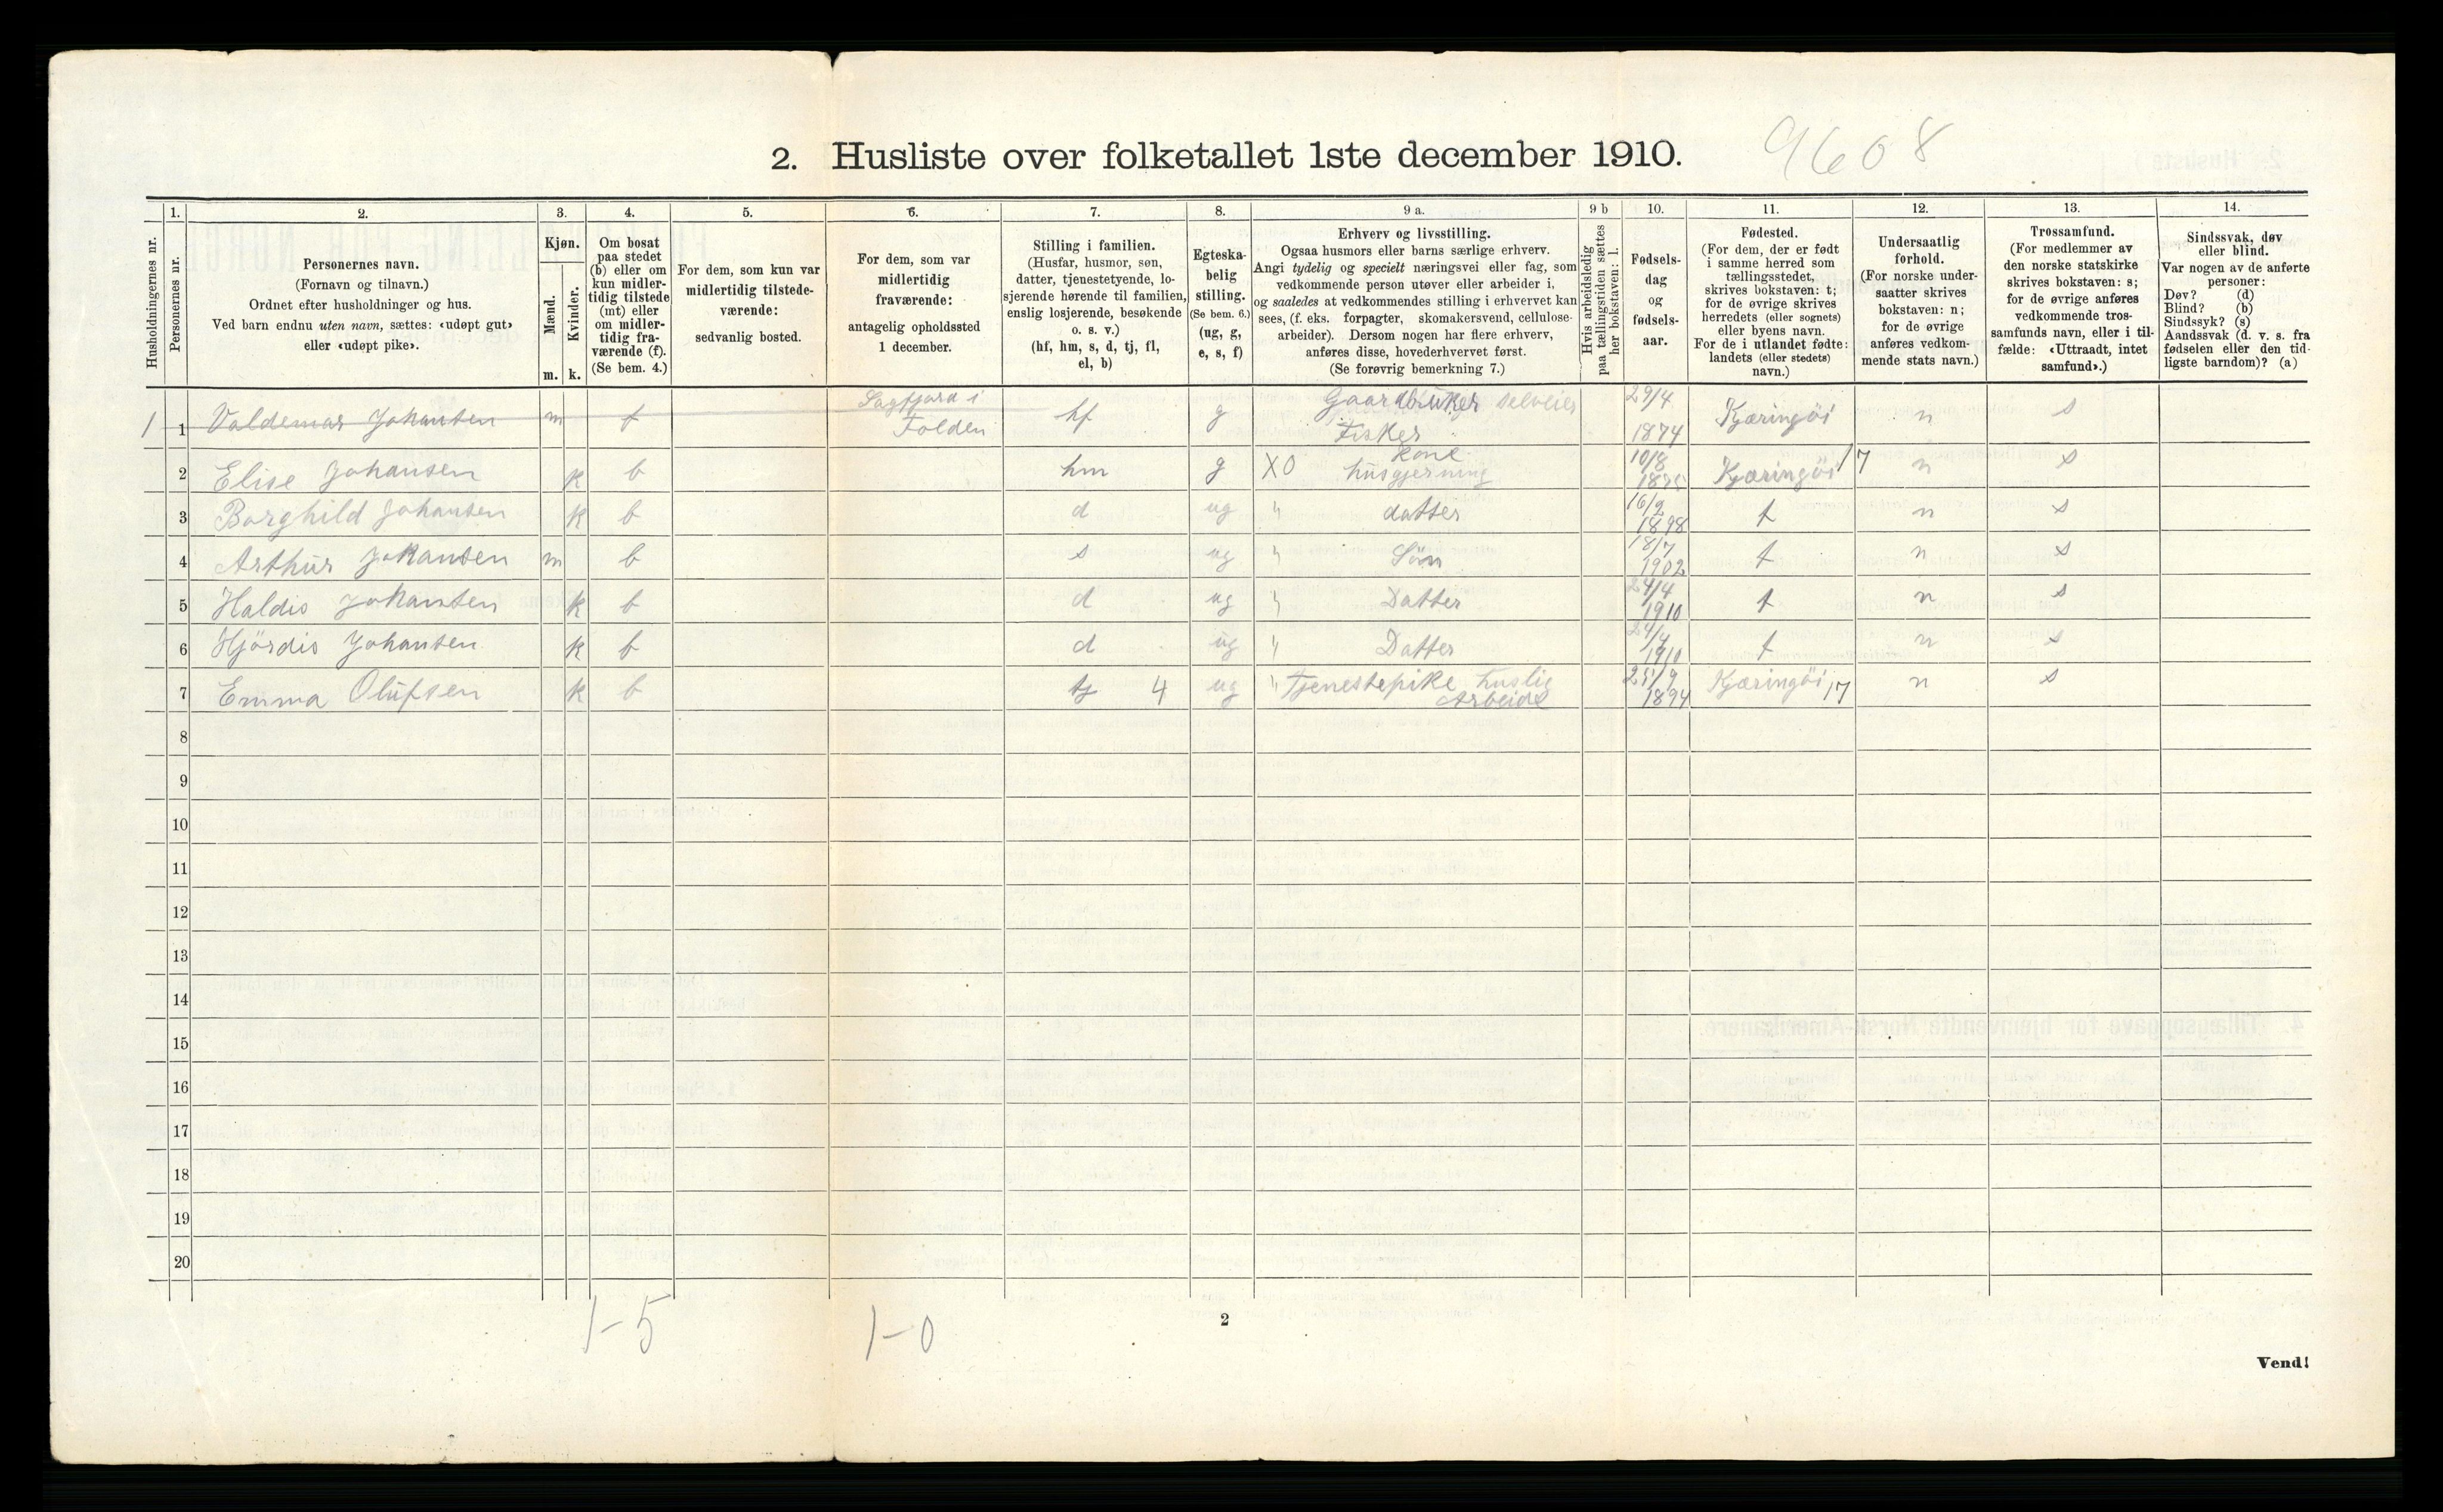 2. Husliste over folketallet 1ste december 1910. 9608
Husholdningernes nr.
1.
Personernes nr.
2.
Personernes navn.
(Fornavn og tilnavn.)
Ordnet efter husholdninger og hus.
Ved barn endnu uten navn, sættes: «udøpt gut»
eller «udøpt pike».
3.
Kjøn.
Mænd.
m.
Kvinder.
k.
4.
Om bosat
paa stedet
(b) eller om
kun midler-
tidig tilstede
(mt) eller
om midler-
tidig fra-
værende (f).
(Se bem. 4.)
5.
For dem, som kun var
midlertidig tilstede-
værende:
sedvanlig bosted.
6.
For dem, som var
midlertidig
fraværende:
antagelig opholdssted
1 december.
7.
Stilling i familien.
(Husfar, husmor, søn,
datter, tjenestetyende, lo-
sjerende hørende til familien,
enslig losjerende, besøkende
o. s. v.)
(hf, hm, s, d, tj, fl,
el, b)
8.
Egteska-
belig
stilling.
(Se bem. 6.)
(ug, g,
e, s, f)
9 a.
Erhverv og livsstilling.
Ogsaa husmors eller barns særlige erhverv.
Angi tydelig og specielt næringsvei eller fag, som
vedkommende person utøver eller arbeider i,
og saaledes at vedkommendes stilling i erhvervet kan
sees, (f. eks. forpagter, skomakersvend, cellulose-
arbeider). Dersom nogen har flere erhverv,
anføres disse, hovederhvervet først.
(Se forøvrig bemerkning 7.)
9 b
Hvis arbeidsledig
paa tællingstiden sættes
her bokstaven: l.
10.
Fødsels-
dag
og
fødsels-
aar.
11.
Fødested.
(For dem, der er født
i samme herred som
tællingsstedet,
skrives bokstaven: t;
for de øvrige skrives
herredets (eller sognets)
eller byens navn.
For de i utlandet fødte:
landets (eller stedets)
navn.)
12.
Undersaatlig
forhold.
(For norske under-
saatter skrives
bokstaven: n;
for de øvrige
anføres vedkom-
mende stats navn.)
13.
Trossamfund.
(For medlemmer av
den norske statskirke
skrives bokstaven: s;
for de øvrige anføres
vedkommende tros-
samfunds navn, eller i til-
fælde: «Uttraadt, intet
samfund».)
14.
Sindssvak, døv
eller blind.
Var nogen av de anførte
personer:
Døv? (d)
Blind? (b)
Sindssyk? (s)
Aandssvak (d. v. s. fra
fødselen eller den tid-
ligste barndom)? (a)
1 1 Valdemar Johansen m f Sagfjord i Folden hf g Gaardbruker selveier Fisker 29/4 1874 Kjæringöi n s
2 Elise Johansen k b hm g XO kone husgjerning 10/8 Kjæringöi 17 n s
3 Borghild Johansen k b d ug " datter 16/2 1898 t n s
4 Arthur Johansen m b s ug " Søn 18/7 1902 t n s
5 Haldis Johansen k b d ug " Datter 24/4 1910 t n s
6 Hjördis Johansen k b d ug " Datter 24/4 1910 t n s
7 Emma Olufsen k b tj 4 ug " Tjenestepike huslig Arbeide 1894 Kjæringöi 17 n s
8
9
10
11
12
13
14
15
16
17
18
19
20
1-5 1-0
2
Vend!